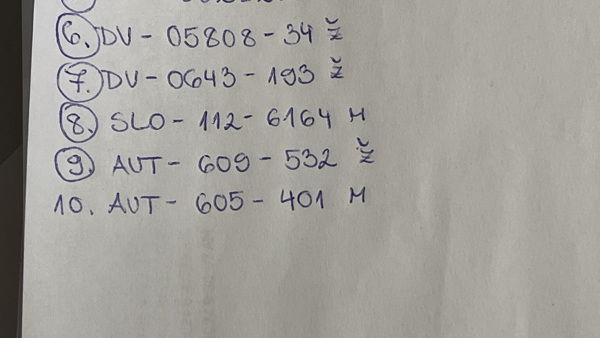 6. DV - 05808 - 34 Ž
7. DV - 0643 - 193 Ž
8. SLO - 112 - 6164 M
9. AUT - 609 - 532 Ž
10. AUT - 605 - 401 M